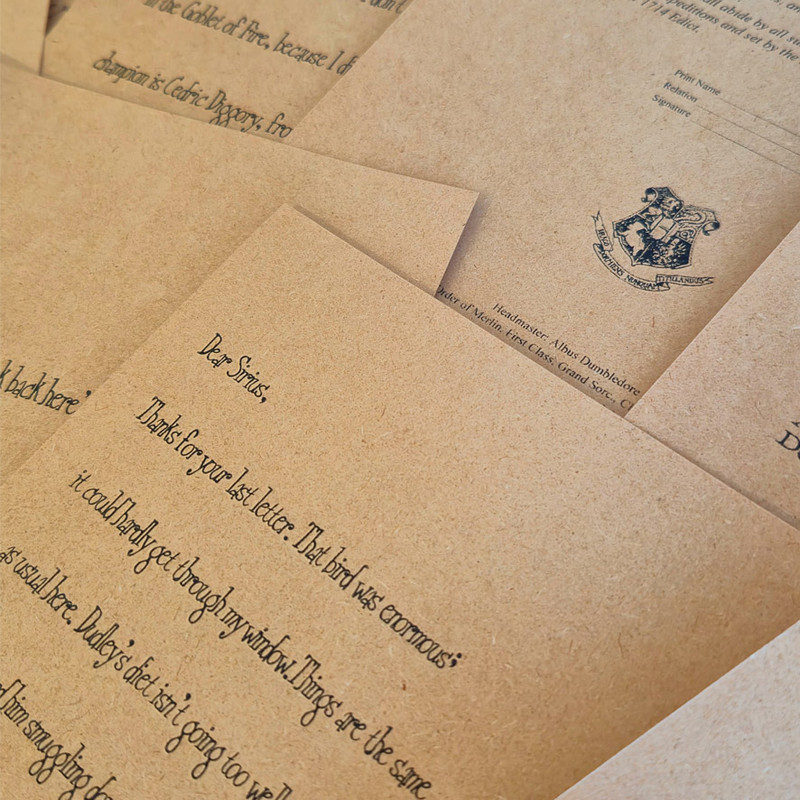 in the Goblet of Fire, because I di
champion is Cedric Diggory, fro
all abide by all
peditions and set by the
1714 Edict.
Print Name
Relation
Signature
DRACO DORMIENS NUNQUAM TITILLANDUS
Headmaster: Albus Dumbledore
Order of Merlin, First Class, Grand Sorc., C
k back here"
Dear Sirius,
Thanks for your last letter. That bird was enormous;
it could hardly get through my window. Things are the same
as usual here. Dudley's diet isn't going too well
d him smuggling do